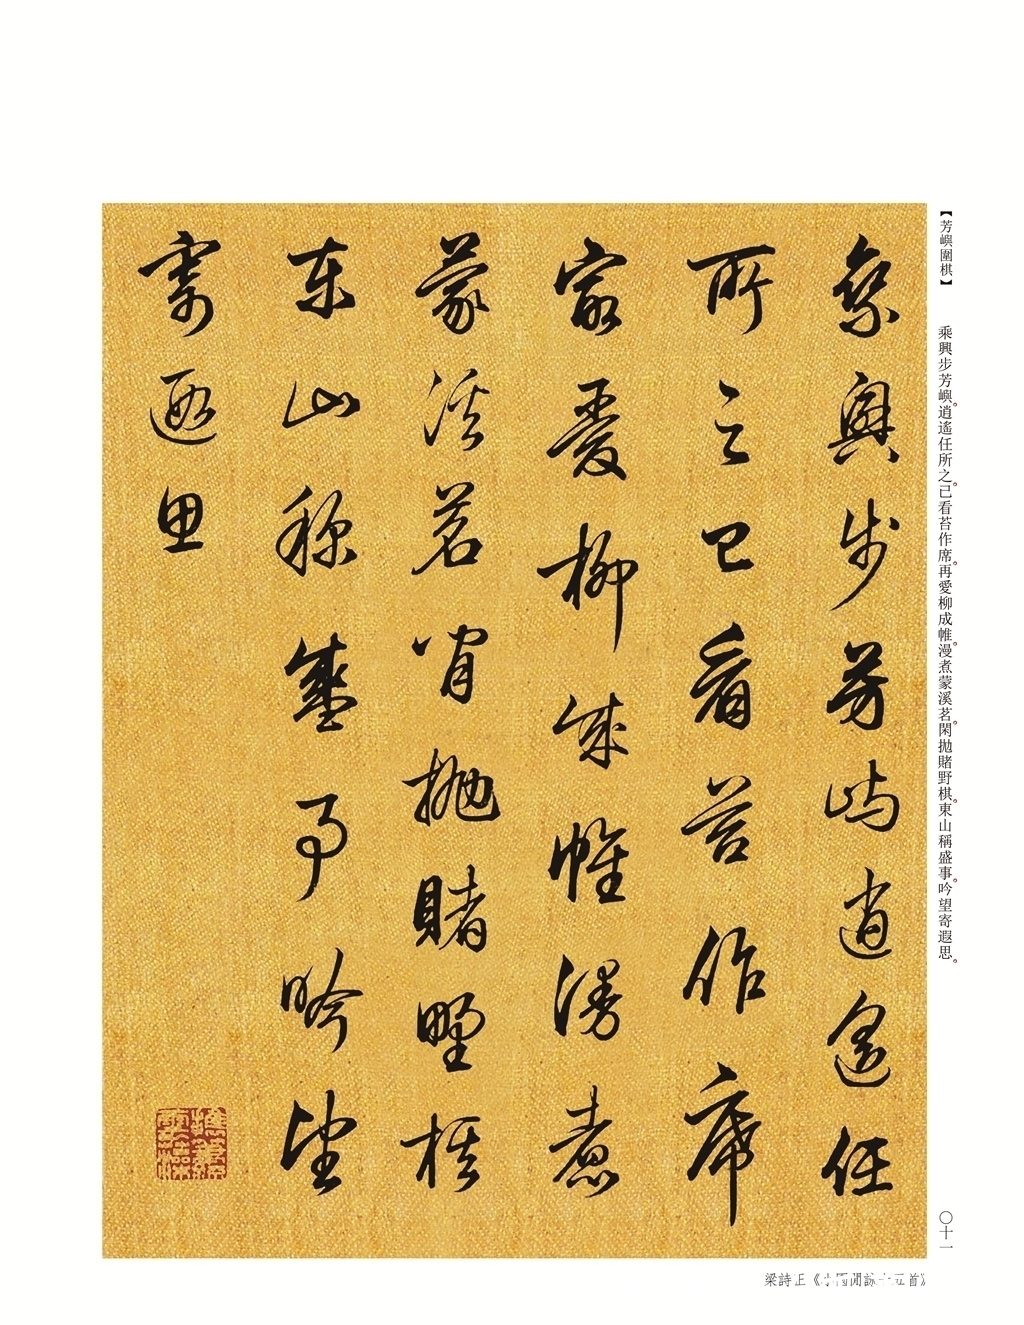 【芳嶼圍棋】 乘興步芳嶼。逍遙任所之。已看苔作席。再愛柳成帷。漫煮蒙溪茗。閑拋賭野棋。東山稱盛事。吟望寄遐思。
乘興步芳嶼逍遙任
所之已看苔作席
愛柳成帷漫煮
蒙溪茗閑拋賭野棋
東山稱盛事吟望
寄遐思
〇十一
梁詩正《園閒詠十五首》